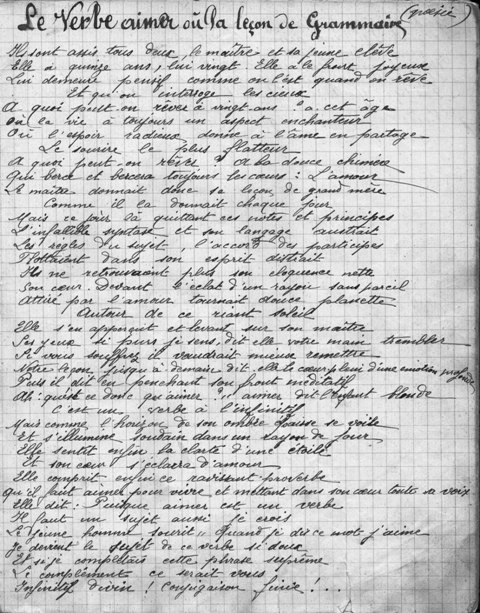 Le Verbe aimer où la leçon de Grammaire (poésie)
Ils sont assis tous deux, le maître et sa jeune élève
Elle à quinze ans, lui vingt. Elle à le port joyeux
Lui demeure pensif comme on l'est quand on rêve
Et qu'on interroge les cieux
A quoi peut on rêver à vingt ans ? a cet âge
où la vie à toujours un aspect enchanteur
Où l'espoir radieux donne à l'âme en partage
Le sourire le plus flatteur
A quoi peut on rêver ? A la douce chimère
Qui berce et bercera toujours les cœurs : L'amour
Le maître donnait donc sa leçon de grand mère
Comme il la donnait chaque jour
Mais ce jour là quittant ces notes et principes
L'infaillible syntaxe et son langage
Les règles du sujet, l'accord des participes
Flottaient dans son esprit distrait
Ils ne retrouvaient plus son éloquence nette
Son cœur devant l'éclat d'un rayon sans pareil
Attiré par l'amour tournait douce planette
Autour de ce riant soleil
Elle s'en aperçoit et levant sur son maître
Ses yeux si purs je sens, dit elle votre main trembler
Si vous souffrez il vaudrait mieux remettre
Notre leçon jusqu'à demain dit elle le cœur plein d'une émotion profonde
Puis il dit en penchant son front méditatif
Ah! qu'est ce donc qu'aimer ? aimer dit l'enfant blonde
C'est un verbe à l'infinitif
Mais comme l'horizon de son ombre fausse se voile
Et s'illumine soudain dans un rayon de jour
Elle sentit enfin la clarté d'une étoile
Et son cœur s'éclaira d'amour
Elle comprit enfin ce ravissant proverbe
Qu'il faut aimer pour vivre et mettant dans son cœur toute sa voix
Elle dit : Puisque aimer est un verbe
Il faut un sujet aussi je crois
Le jeune homme sourit " Quand je dis ce mot j'aime
Je deviens le sujet de ce verbe si doux
Et si je complétais cette phrase suprême
Le complément ce serait vous
Infinitif divin ! conjugaison finie ! ...